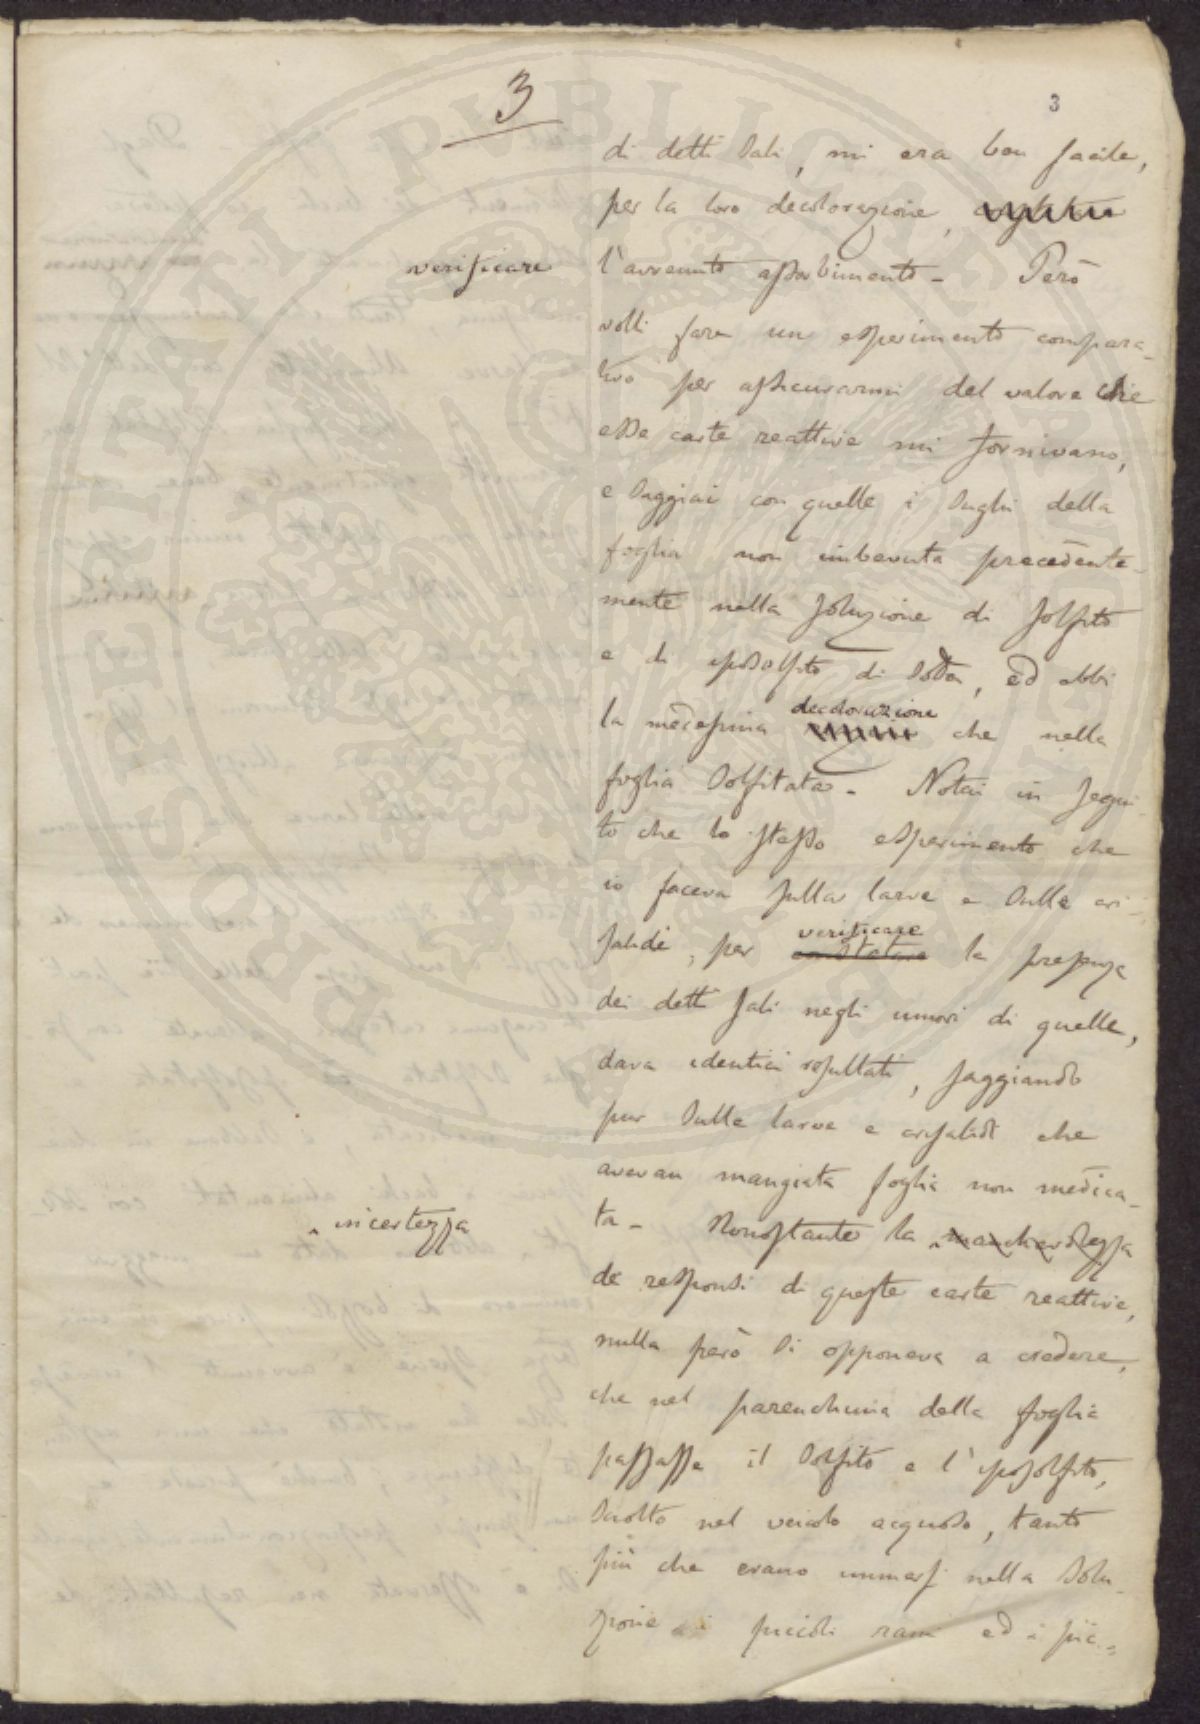 3
3
di detti Sali, mi era ben facile,
per la loro decolorazione,
verificare
l'avvenuto assorbimento - Però
volli fare un esperimento compara-
tivo per assicurarmi del valore che
esse carte reattive mi fornivano,
e Saggiai con quelle i Sughi della
foglia non imbevuta precedente-
mente nella soluzione di solfito
e di iposolfito di Soda, ed ebbi
la medesima decolorazione che nella
foglia Solfitata - Notai in segui-
to che lo stesso esperimento che
io faceva sulla larve e Sulle cri-
salidi, per verificare constatare la presenza
dei detti sali negli umori di quelle,
dava identici resultati, saggiando
pur Sulle larve e crisalidi che
avevan mangiata foglia non medica-
ta - Nonostante la manchevolezza
incertezza
de responsi di queste carte reattive,
nulla però Si opponeva a credere,
che nel parenchima della foglia
passasse il Solfito e l'iposolfito,
Sciolto nel veicolo acquoso, tanto
più che erano immersi nella Solu-
zione i piccoli rami ed i pic-